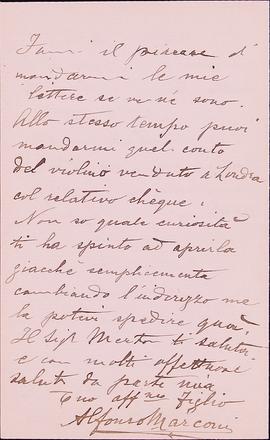 Fammi il piacere di
mandarmi le mie
lettere se ve né sono.
Allo stesso tempo puoi
mandarmi quel conto
del violino venduto a Londra
col relativo chèque.
Non so quale curiosità
ti ha spinto ad aprirla
giacchè semplicemente
cambiando l'inderizzo me
la potevi spedire quà.
Il Sigr ti saluta
e con molti affettuosi
saluti da parte mia
Tuo affmo Figlio
Alfonso Marconi